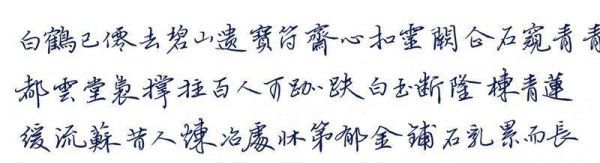 白鶴已僊去碧山遺寶符齋心扣靈闕仚石窺青青
都雲堂裊撑拄百人可跏趺白玉斷隆棟青蓮
緩流蘇昔人煉冶處牀第郁金鋪石乳累而長